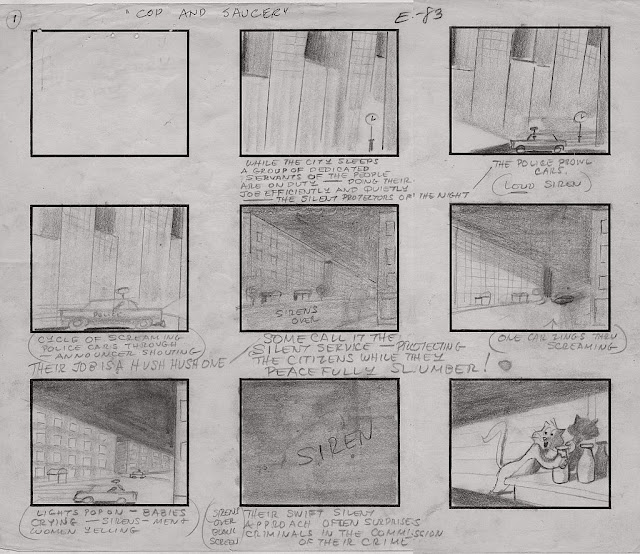 1
"COP AND SAUCERY"
E-83
WHILE THE CITY SLEEPS
A GROUP OF DEDICATED
SERVANTS OF THE PEOPLE
ARE ON DUTY — DOING THEIR
JOB EFFICIENTLY AND QUIETLY
— THE SILENT PROTECTORS OF THE NIGHT
THE POLICE PROWL
CARS.
(LOUD SIREN)
POLICE
(CYCLE OF SCREAMING
POLICE CARS THROUGH
— ANNOUNCER SHOUTING)
THEIR JOB IS A HUSH HUSH ONE
SIRENS
OVER
SOME CALL IT THE
SILENT SERVICE — PROTECTING
THE CITIZENS WHILE THEY
PEACEFULLY SLUMBER!
(ONE CAR ZINGS THRU
SCREAMING)
(LIGHTS POP ON — BABIES
CRYING — SIRENS — MEN +
WOMEN YELLING)
SIREN
(SIRENS
OVER
BLANK
SCREEN)
THEIR SWIFT SILENT
APPROACH OFTEN SURPRISES
CRIMINALS IN THE COMMISSION
OF THEIR CRIME